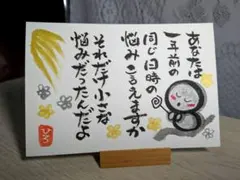 あなたは
一年前の
同じ日時の
悩みこえますか
それだけ小さな
悩みだったんだよ
ひろ